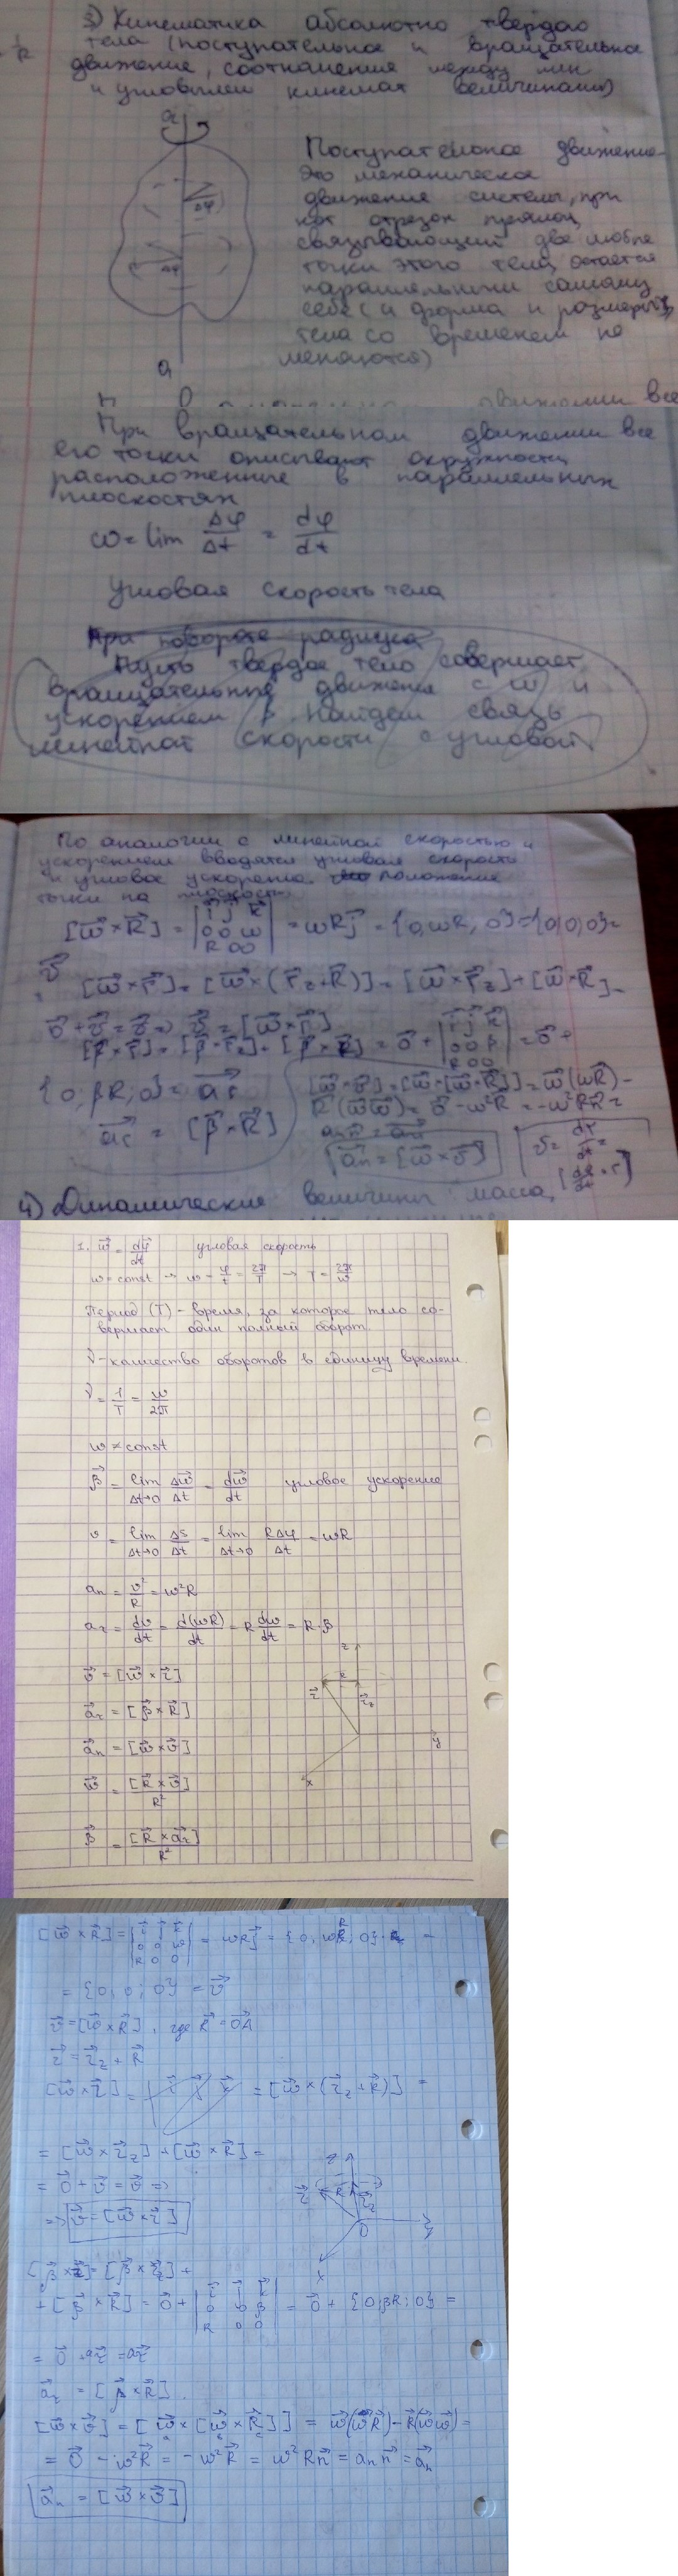 3) Кинематика абсолютно твердого
тела (поступательное и вращательное
движение, соотношения между лин
и угловыми кинемат величинами)
1/R
a
Δφ
Δφ
a
Поступательное движение-
это механическое
движение системы, при
кот отрезок прямой,
связывающий две любые
точки этого тела, остается
параллельным самому
себе (а форма и размеры
тела со временем не
меняются)
движении все
При вращательном движении все
его точки описывают окружности,
расположенные в параллельных
плоскостях
ω = lim Δφ/Δt = dφ/dt
Угловая скорость тела
При повороте радиуса
Пусть твердое тело совершает
вращательные движения с ω и
ускорением β найдем связь
линейной скорости с угловой
По аналогии с линейной скоростью и
ускорением вводятся угловая скорость
и угловое ускорение. положение
точки на плоскости.
[ω⃗ × R⃗] = |i⃗ j⃗ k⃗; 0 0 ω; R 0 0| = ωRj⃗ = {0, ωR, 0} = {0, υ, 0} =
υ⃗
[ω⃗ × r⃗] = [ω⃗ × (r⃗z + R⃗)] = [ω⃗ × r⃗z] + [ω⃗ × R⃗] =
0⃗ + υ⃗ = υ⃗ ⇒ υ⃗ = [ω⃗ × r⃗]
[β⃗ × r⃗] = [β⃗ × r⃗z] + [β⃗ × R⃗] = 0⃗ + |i⃗ j⃗ k⃗; 0 0 β; R 0 0| = 0⃗ +
{0, βR, 0} = a⃗τ
a⃗τ = [β⃗ × R⃗]
[ω⃗ × υ⃗] = [ω⃗ × [ω⃗ × R⃗]] = ω⃗(ωR⃗) -
R⃗(ω⃗ω⃗) = 0⃗ - ω²R⃗ = -ω²R⃗ =
a⃗n = [ω⃗ × υ⃗]
υ = dr/dt =
4) Динамические величины масса,
1. ω⃗ = dφ⃗/dt угловая скорость
ω = const → ω = φ/t = 2π/T → T = 2π/ω
Период (T) - время, за которое тело со-
вершает один полный оборот.
ν - количество оборотов в единицу времени.
ν = 1/T = ω/2π
ω ≠ const
β⃗ = lim Δt→0 Δω⃗/Δt = dω⃗/dt угловое ускорение
υ = lim Δt→0 ΔS/Δt = lim Δt→0 RΔφ/Δt = ωR
an = υ²/R = ω²R
aτ = dυ/dt = d(ωR)/dt = R dω/dt = R·β
υ⃗ = [ω⃗ × r⃗]
a⃗τ = [β⃗ × R⃗]
a⃗n = [ω⃗ × υ⃗]
ω⃗ = [R⃗ × υ⃗]/R²
β⃗ = [R⃗ × a⃗τ]/R²
z
R
r⃗
r⃗z
y
x
[ω⃗ × R⃗] = |i⃗ j⃗ k⃗; 0 0 ω; R 0 0| = ωRj⃗ = {0, ωR, 0} =
= {0; υ; 0} = υ⃗
υ⃗ = [ω⃗ × R⃗], где R⃗ = OA⃗
r⃗ = r⃗z + R⃗
[ω⃗ × r⃗] = |i⃗ j⃗ k⃗ = [ω⃗ × (r⃗z + R⃗)] =
= [ω⃗ × r⃗z] + [ω⃗ × R⃗] =
= 0⃗ + υ⃗ = υ⃗ ⇒
⇒ υ⃗ = [ω⃗ × r⃗]
z
r⃗
R
r⃗z
O
y
x
[β⃗ × r⃗] = [β⃗ × r⃗z] +
+ [β⃗ × R⃗] = 0⃗ + |i⃗ j⃗ k⃗; 0 0 β; R 0 0| = 0⃗ + {0; βR; 0} =
= 0⃗ + a⃗τ = a⃗τ
a⃗τ = [β⃗ × R⃗].
[ω⃗ × υ⃗] = [ω⃗ × [ω⃗ × R⃗]] = ω⃗(ω⃗R⃗) - R⃗(ω⃗ω⃗) =
a b c
= 0⃗ - ω²R⃗ = -ω²R⃗ = ω²Rn⃗ = an n⃗ = a⃗n
a⃗n = [ω⃗ × υ⃗]